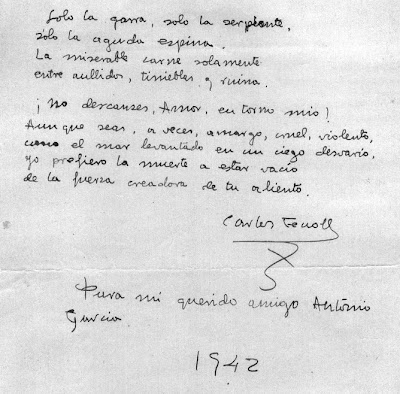 Solo la garra, solo la serpiente,
sólo la aguda espina.
La miserable carne solamente
entre aullidos, tinieblas y ruina.
¡No descanses, Amor, en torno mio!
Aunque seas, a veces, amargo, cruel, violento,
como el mar levantado en un ciego desvario,
yo prefiero la muerte a estar vacio
de la fuerza creadora de tu aliento.
Carlos Fenoll
Para mi querido amigo António
Garcia.
1942